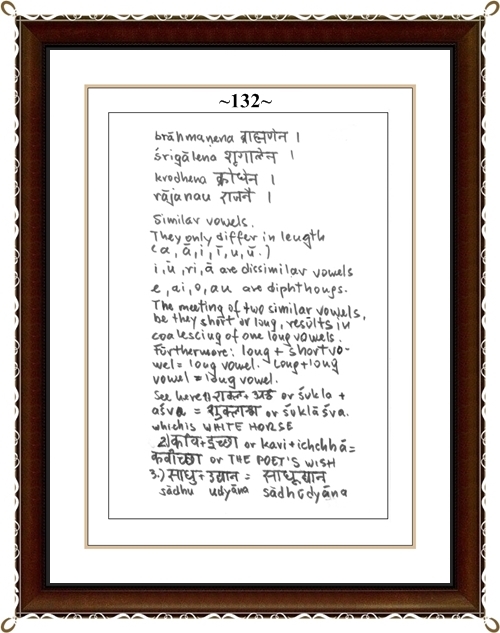 ~132~
brāhmaṇena ब्राह्मणेन ।
śrigālena शृगालेन ।
krodhena क्रोधेन ।
rājanau राजनै ।
Similar vowels.
They only differ in length
(a, ā, i, ī, u, ū.)
i, ū, ri, ā are dissimilar vowels
e, ai, o, au are diphthongs.
The meeting of two similar vowels,
be they short or long, results in
coalescing of one long vowels.
Furthermore: long + short vo-
wel = long vowel. Long + long
vowel = long vowel.
See here 1) or śukla +
aśva = or śuklāśva.
which is WHITE HORSE
2) कवि + इच्छा or kavi + ichchhā =
कवीच्छा or THE POET'S WISH
3.) साधु + उद्यान = साधूद्यान
sādhu udyāna sādhūdyāna